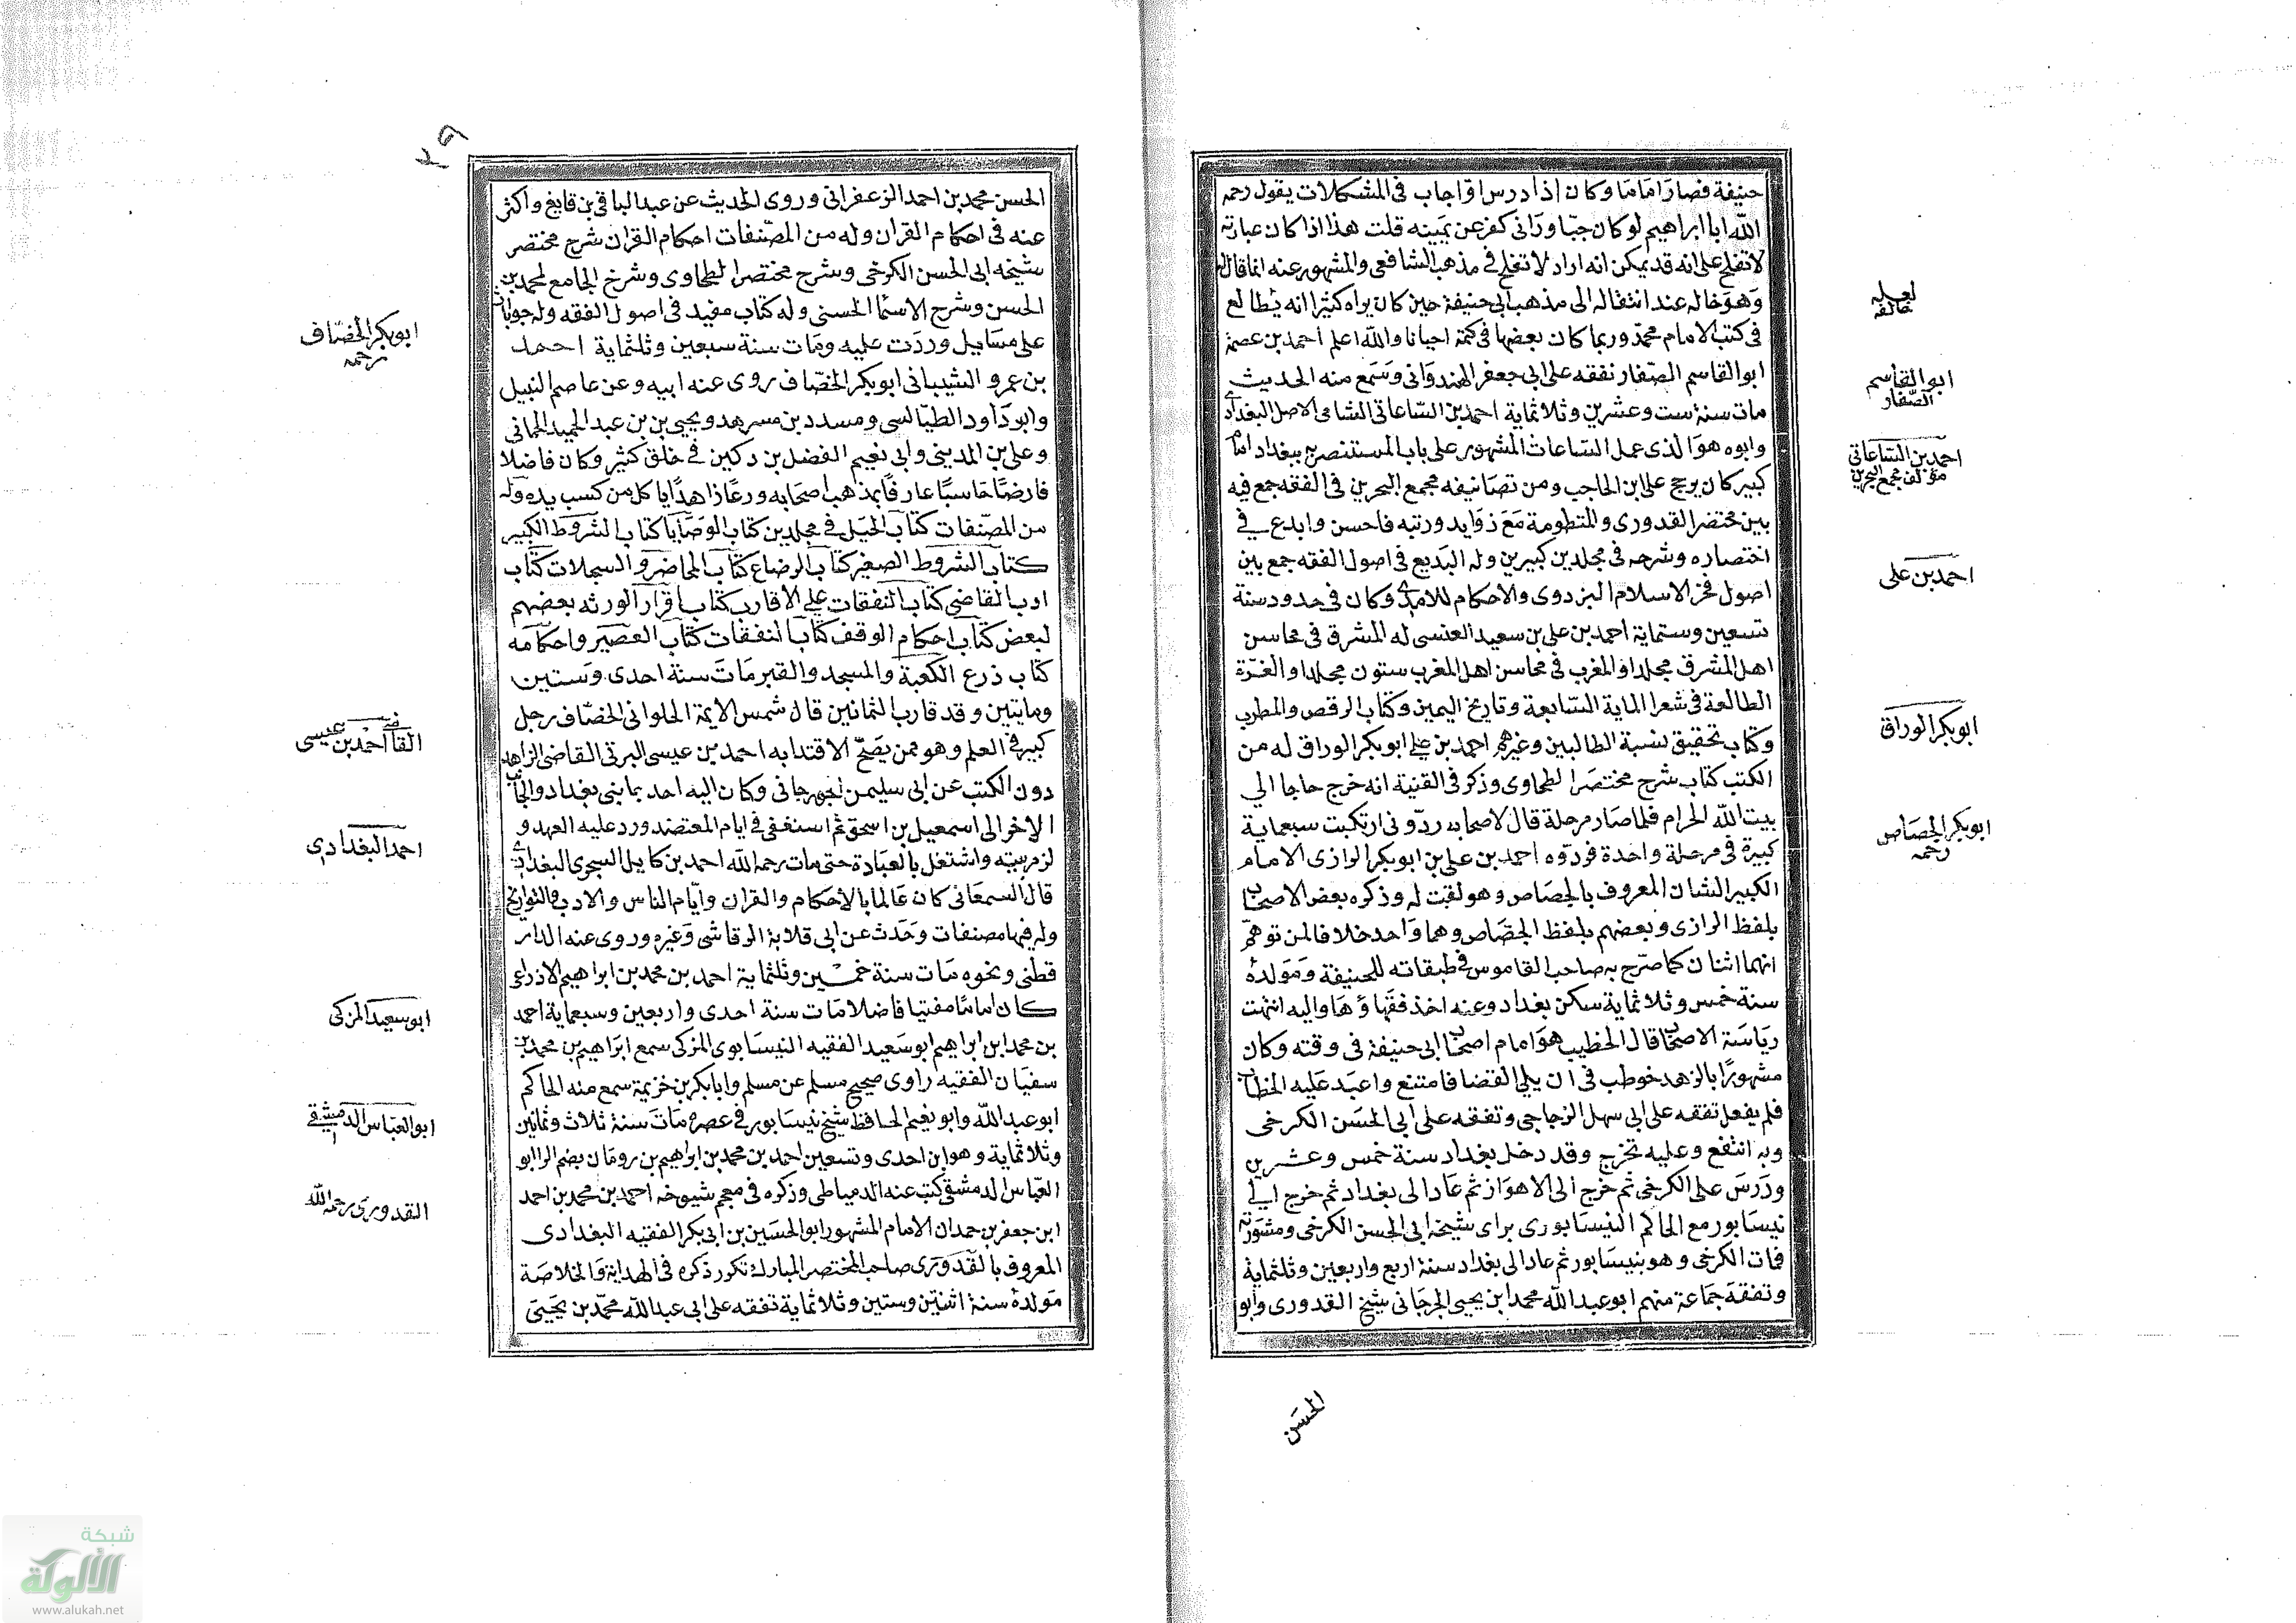 حنيفة فصار اماما وكان اذا درس او اجاب في المشكلات يقول رحمه
الله ابا ابراهيم لو كان حيا ورآني كفر عن يمينه قلت هذا اذا كان عبارته
لا تفلح على انه قد يمكن انه اراد لا تفلح في مذهب الشافعي والمشهور عنه انما قال له
وهو خاله عند انتقاله الى مذهب ابي حنيفة حين كان يراه كثيرا انه يطالع
لعله
خالفه
في كتب الامام محمد وربما كان بعضها في كمّه احيانا والله اعلم احمد بن عصمة
ابو القاسم الصفار تفقه على ابي جعفر الهندواني وسمع منه الحديث
ابو القاسم
الصّفار
مات سنة ست وعشرين وثلاثماية احمد بن السّاعاتي الشامي الاصل البغدادي
وابوه هو الذي عمل السّاعات المشهور على باب المستنصرية ببغداد امام
احمد بن السّاعاتي
مؤلف مجمع البحرين
كبير كان يرجح على ابن الحاجب ومن تصانيفه مجمع البحرين في الفقه جمع فيه
بين مختصر القدوري والمنظومة مع زوايد ورتبه فاحسن وابدع في
اختصاره وشرحه في مجلدين كبيرين وله البديع في اصول الفقه جمع بين
اصول فخر الاسلام البزدوي والاحكام للامدي وكان في حدود سنة
احمد بن على
تسعين وستماية احمد بن على بن سعيد العنسى له المشرق في محاسن
اهل المشرق مجلدا والمغرب في محاسن اهل المغرب ستون مجلدا والغرّة
الطالعة في شعرا الماية السّابعة وتاريخ اليمين وكتاب الرقص والمطرب
وكتاب تحقيق نسبة الطالبين وغيرهم احمد بن علي ابو بكر الوراق له من
ابوبكر الوراق
الكتب كتاب شرح مختصر الطحاوى وذكر في القنية انه خرج حاجا الي
بيت الله الحرام فلما صار مرحلة قال لاصحابه ردّوني ارتكبت سبعماية
كبيرة في مرحلة واحدة فردّوه احمد بن على بن ابو بكر الرازى الامام
ابوبكر الجصاص
رحمه
الكبير الشان المعروف بالجصاص وهو لقب له وذكره بعض الاصحاب
بلفظ الرازى وبعضهم بلفظ الجصّاص وهما واحد خلافا لمن توهّم
انهما اثنان كما صرّح به صاحب القاموس في طبقاته للحنيفة ومولده
سنة خمس وثلاثماية سكن بغداد وعنه اخذ فقهاؤها واليه انتهت
رياسة الاصحاب قال الخطيب هو امام اصحاب ابي حنيفة في وقته وكان
مشهورا بالزهد خوطب في ان يلي القضا فامتنع واعيد عليه الخطاب
فلم يفعل تفقه على ابي سهل الزجاجي وتفقه على ابي الحسن الكرخى
وبه انتفع وعليه تخرج وقد دخل بغداد سنة خمس وعشرين
ودرس على الكرخي ثم خرج الى الاهواز ثم عاد الى بغداد ثم خرج الي
نيسابور مع الحاكم النيسابورى براى شيخه ابي الحسن الكرخى ومشورته
فمات الكرخى وهو بنيسابور ثم عاد الى بغداد سنة اربع واربعين وثلثماية
وتفقه جماعة منهم ابو عبد الله محمد ابن يحيى الجرجاني شيخ القدورى وابو
الحسَن
٢٩
الحسن محمد بن احمد الزعفراني وروى الحديث عن عبد الباقي بن قايغ واكثر
عنه في احكام القران وله من المصنفات احكام القران شرح مختصر
شيخه ابي الحسن الكرخى وشرح مختصر الطحاوى وشرح الجامع لمحمد بن
الحسن وشرح الاسما الحسنى وله كتاب مفيد في اصول الفقه وله جوابات
على مسايل وردت عليه ومات سنة سبعين وثلثماية احمد
ابوبكر الخصّاف
رحمه
بن عمرو الشيباني ابوبكر الخصّاف روى عنه ابيه وعن عاصم النبيل
وابو داود الطيّالسى ومسدد بن مسرهد ويحيى بن بن عبد الحميد الحماني
وعلى بن المديني وابي نعيم الفضل بن دكين في خلق كثير وكان فاضلا
فارضا حاسبا عارفا بمذهب اصحابه ورعا زاهدا ياكل من كسب يده وله
من المصّنفات كتاب الحيل في مجلدين كتاب الوصايا كتاب الشروط الكبير
كتاب الشروط الصغير كتاب الرضاع كتاب المحاضر والسجلات كتاب
ادب القاضي كتاب النفقات علي الاقارب كتاب اقرار الورثه بعضهم
لبعض كتاب احكام الوقف كتاب النفقات كتاب العصير واحكامه
كتاب ذرع الكعبة والمسجد والقبر مات سنة احدى وستين
ومايتين وقد قارب الثمانين قال شمس الايمة الحلواني الخصّاف رجل
كبير في العلم وهو ممن يصحّ الاقتدا به احمد بن عيسى البرتي القاضى الزاهد
القاضى احمد بن عيسى
دون الكتب عن ابي سليمن الجورجاني وكان اليه احد بما بنى بغداد والجانب
الاخر الى اسمعيل بن اسحق ثم استغفى في ايام المعتضد ورد عليه العهد و
لزم بيته واشتغل بالعبادة حتى مات رحمه الله احمد بن كايل السجرى البغدادي
احمد البغدادي
قال السمعاني كان عالما بالاحكام والقران وايّام الناس والادب والتواريخ
وله فيها مصنفات وحدث عن ابي قلابة الرقاشي وغيره وروى عنه الدار
قطنى ونحوه مات سنة خمسين وثلثماية احمد بن محمد بن ابراهيم الاذرعي
كان اماما مفتيا فاضلا مات سنة احدى واربعين وسبعماية احمد
ابو سعيد المزكى
بن محمد ابن ابراهيم ابو سعيد الفقيه النيسابوى المزكى سمع ابراهيم بن محمد بن
سفيان الفقيه راوى صحيح مسلم عن مسلم وابا بكر بن خزيمة سمع منه الحاكم
ابو عبد الله وابو نعيم الحافظ شيخ نيسابور في عصره مات سنة ثلاث وثمانين
وثلاثماية وهو ابن احدى وتسعين احمد بن محمد بن ابراهيم بن رومان بضم الرا ابو
ابو العبّاس الدمشقي
العبّاس الدمشقى كتب عنه الدمياطى وذكره في معجم شيوخه احمد بن محمد بن احمد
القدورى رحمه الله
ابن جعفر بن حمدان الامام المشهور ابو الحسين بن ابي بكر الفقيه البغدادى
المعروف بالقدورى صاحب المختصر المبارك تكرر ذكره في الهداية والخلاصة
مولده سنة اثنتين وستين وثلاثماية تفقه على ابي عبد الله محمّد بن يحيى
شبكة
الألوكة
www.alukah.net